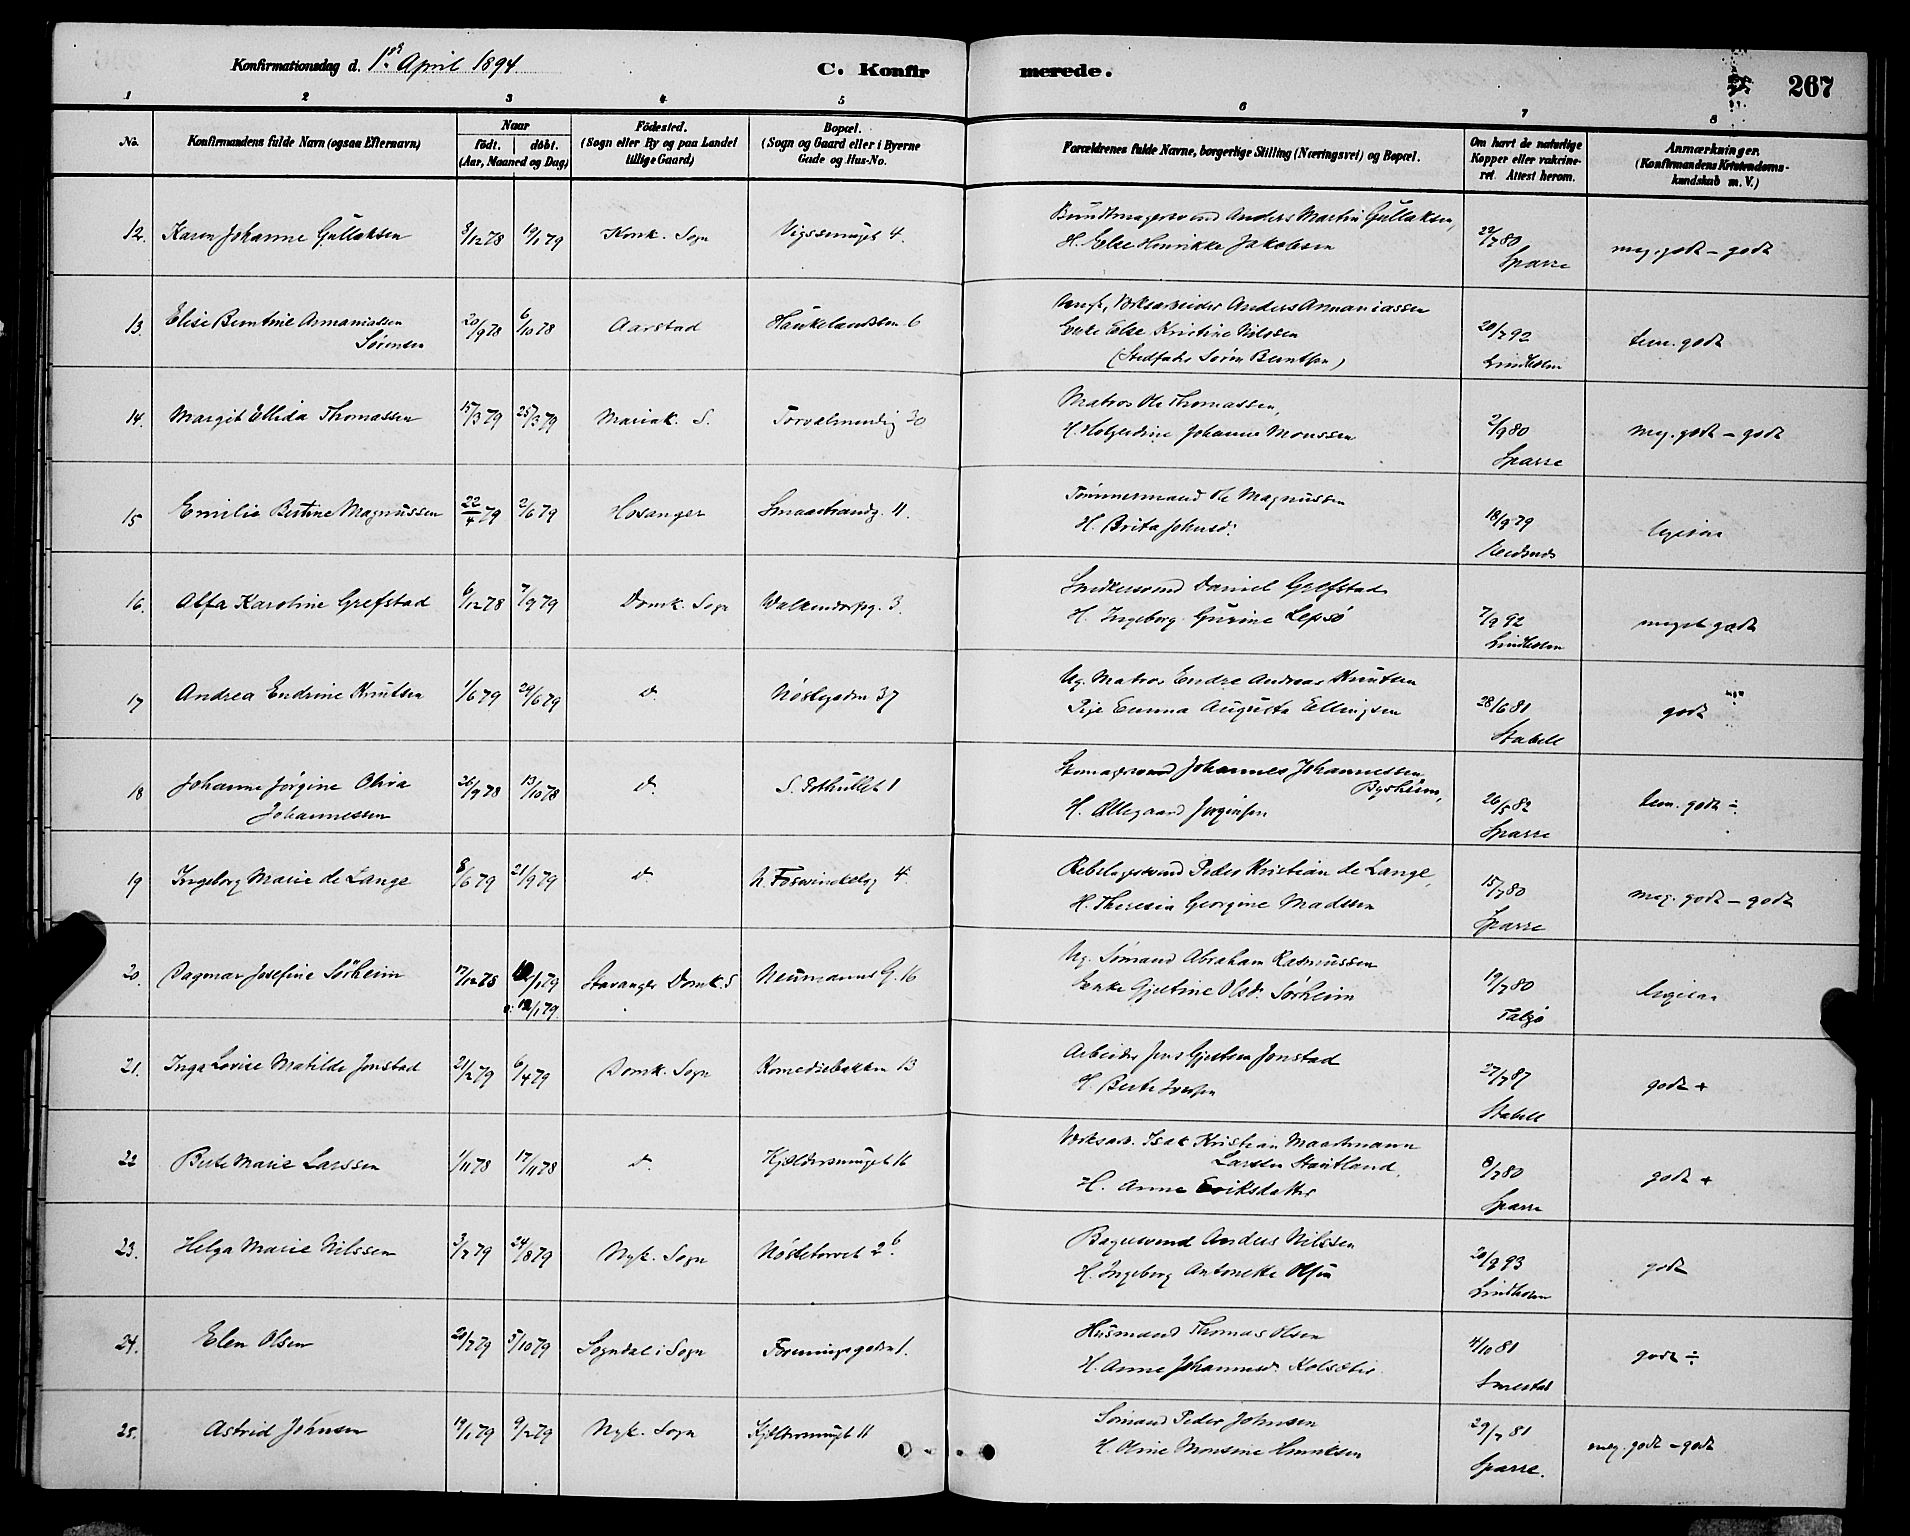 Konfirmationsdag d. 1ste April 1894
C. Konfirmerede.
267
1 2 3 4 5 6 7 8
No.
Konfirmandens fulde Navn (ogsaa Efternavn)
Naar
födt. döbt.
(Aar, Maaned og Dag)
Födested.
(Sogn eller By og paa Landet
tillige Gaard)
Bopæl.
(Sogn og Gaard eller i Byerne
Gade og Hus-No.
Forældrenes fulde Navne, borgerlige Stilling (Næringsvei) og Bopæl.
Om havt de naturlige
Kopper eller vakcine-
ret. Attest herom.
Anmærkninger.
(Konfirmandens Kristendoms-
kundskab m. V.)
12. Karen Johanne Gullaksen 3/12 78 19/1 79 Korsk. Sogn 4.
Anders Martin Gullaksen,
H. Else Henrikke Jakobsen
29/7 80
Sparre
meg. godt - godt
13. Elise Berntine Armaniassen
Sørensen
20/9 78 6/10 78 Aarstad 6
Anders Armaniassen
Enke Else Kristine Nilssen
(Stedfader Sørin Berntsen)
20/7 92
Lindholm
tem. godt
14. Margit Ellida Thomassen 15/3 79 25/3 79 Mariak. S. Torvalmendig 30
Matros Ole Thomassen,
H. Johanne Monssen
2/9 80
Sparre
meg. godt - godt
15 Emilie Bertine Magnussen 22/4 79 2/6 79 Hosanger Smaastrandg. 11.
Tømmermand Ole Magnussen
H. Brita Johnsd.
18/9 79
16. Alfa Karoline Grefstad 6/12 78 7/9 79 Domk. Sogn Walkendorfsg. 3.
Snedkersvend Daniel Grefstad
H. Ingeborg Gurine Lepsø
7/9 92
Lindholm
meget godt
17 Andrea Endrine Knutsen 1/6 79 29/6 79 d. Nøstegaden 37
Ug. Matros Endre Andreas Knutsen
Pige Emma Augusta Ellingsen
28/6 81
Stabell
godt
18 Johanne Jørgine Oliva
Johannessen
26/9 78 13/10 78 d. 1
Skomagersvend Johannes Johannessen
Bysheim,
H. Allegaard Jørgensen
26/5 82
Sparre
tem. godt ÷
19 Ingeborg Marie de Lange 8/6 79 21/9 79 d. N. Foswinckelsg 4.
Rebslagersvend Peder Kristian de Lange,
H. Theresia Georgine Madssen
15/7 80
Sparre
meg. godt - godt
20. Dagmar Josefine Sørheim 17/12 78 Stavanger Domk. S Neumanns G. 16
Ug. Sømand Abraham Rasmussen
Enke Gjertine Olsd. Sørheim
19/7 80
21. Inga Lovise Matilde Jonstad 21/2 79 6/4 79 Domk. Sogn Komediebakken 13
Arbeider Jens Gjertsen Jonstad
H. Berte
27/7 87
Stabell
godt +
22 Berte Marie Larssen 1/11 78 17/11 78 d. Kjeldersmuget 16
Isak Kristian Maartmann
Larssen Stautland,
H. Anne Eriksdatter
8/7 80
Sparre
godt +
23. Helga Marie Nilssen 3/7 79 24/8 79 Nyk. Sogn Nøstetorvet 2b.
Bagersvend Anders Nilssen
H. Ingeborg Antonette Olsen
20/9 93
Lindholm
godt
24. Elen Olsen 20/7 79 5/10 79 Sogndal i Sogn Foreningsgaden 1.
Husmand Thomas Olsen
H. Anne Johannesd. Kolsæter
4/10 81
Smestad
godt ÷
25. Astrid Johnsen 19/1 79 9/2 79 Nyk. Sogn Kjeldersmuget 11
Sømand Peder Johnsen
H. Oline Monsine Henriksen
29/7 81
Sparre.
meg. godt - godt